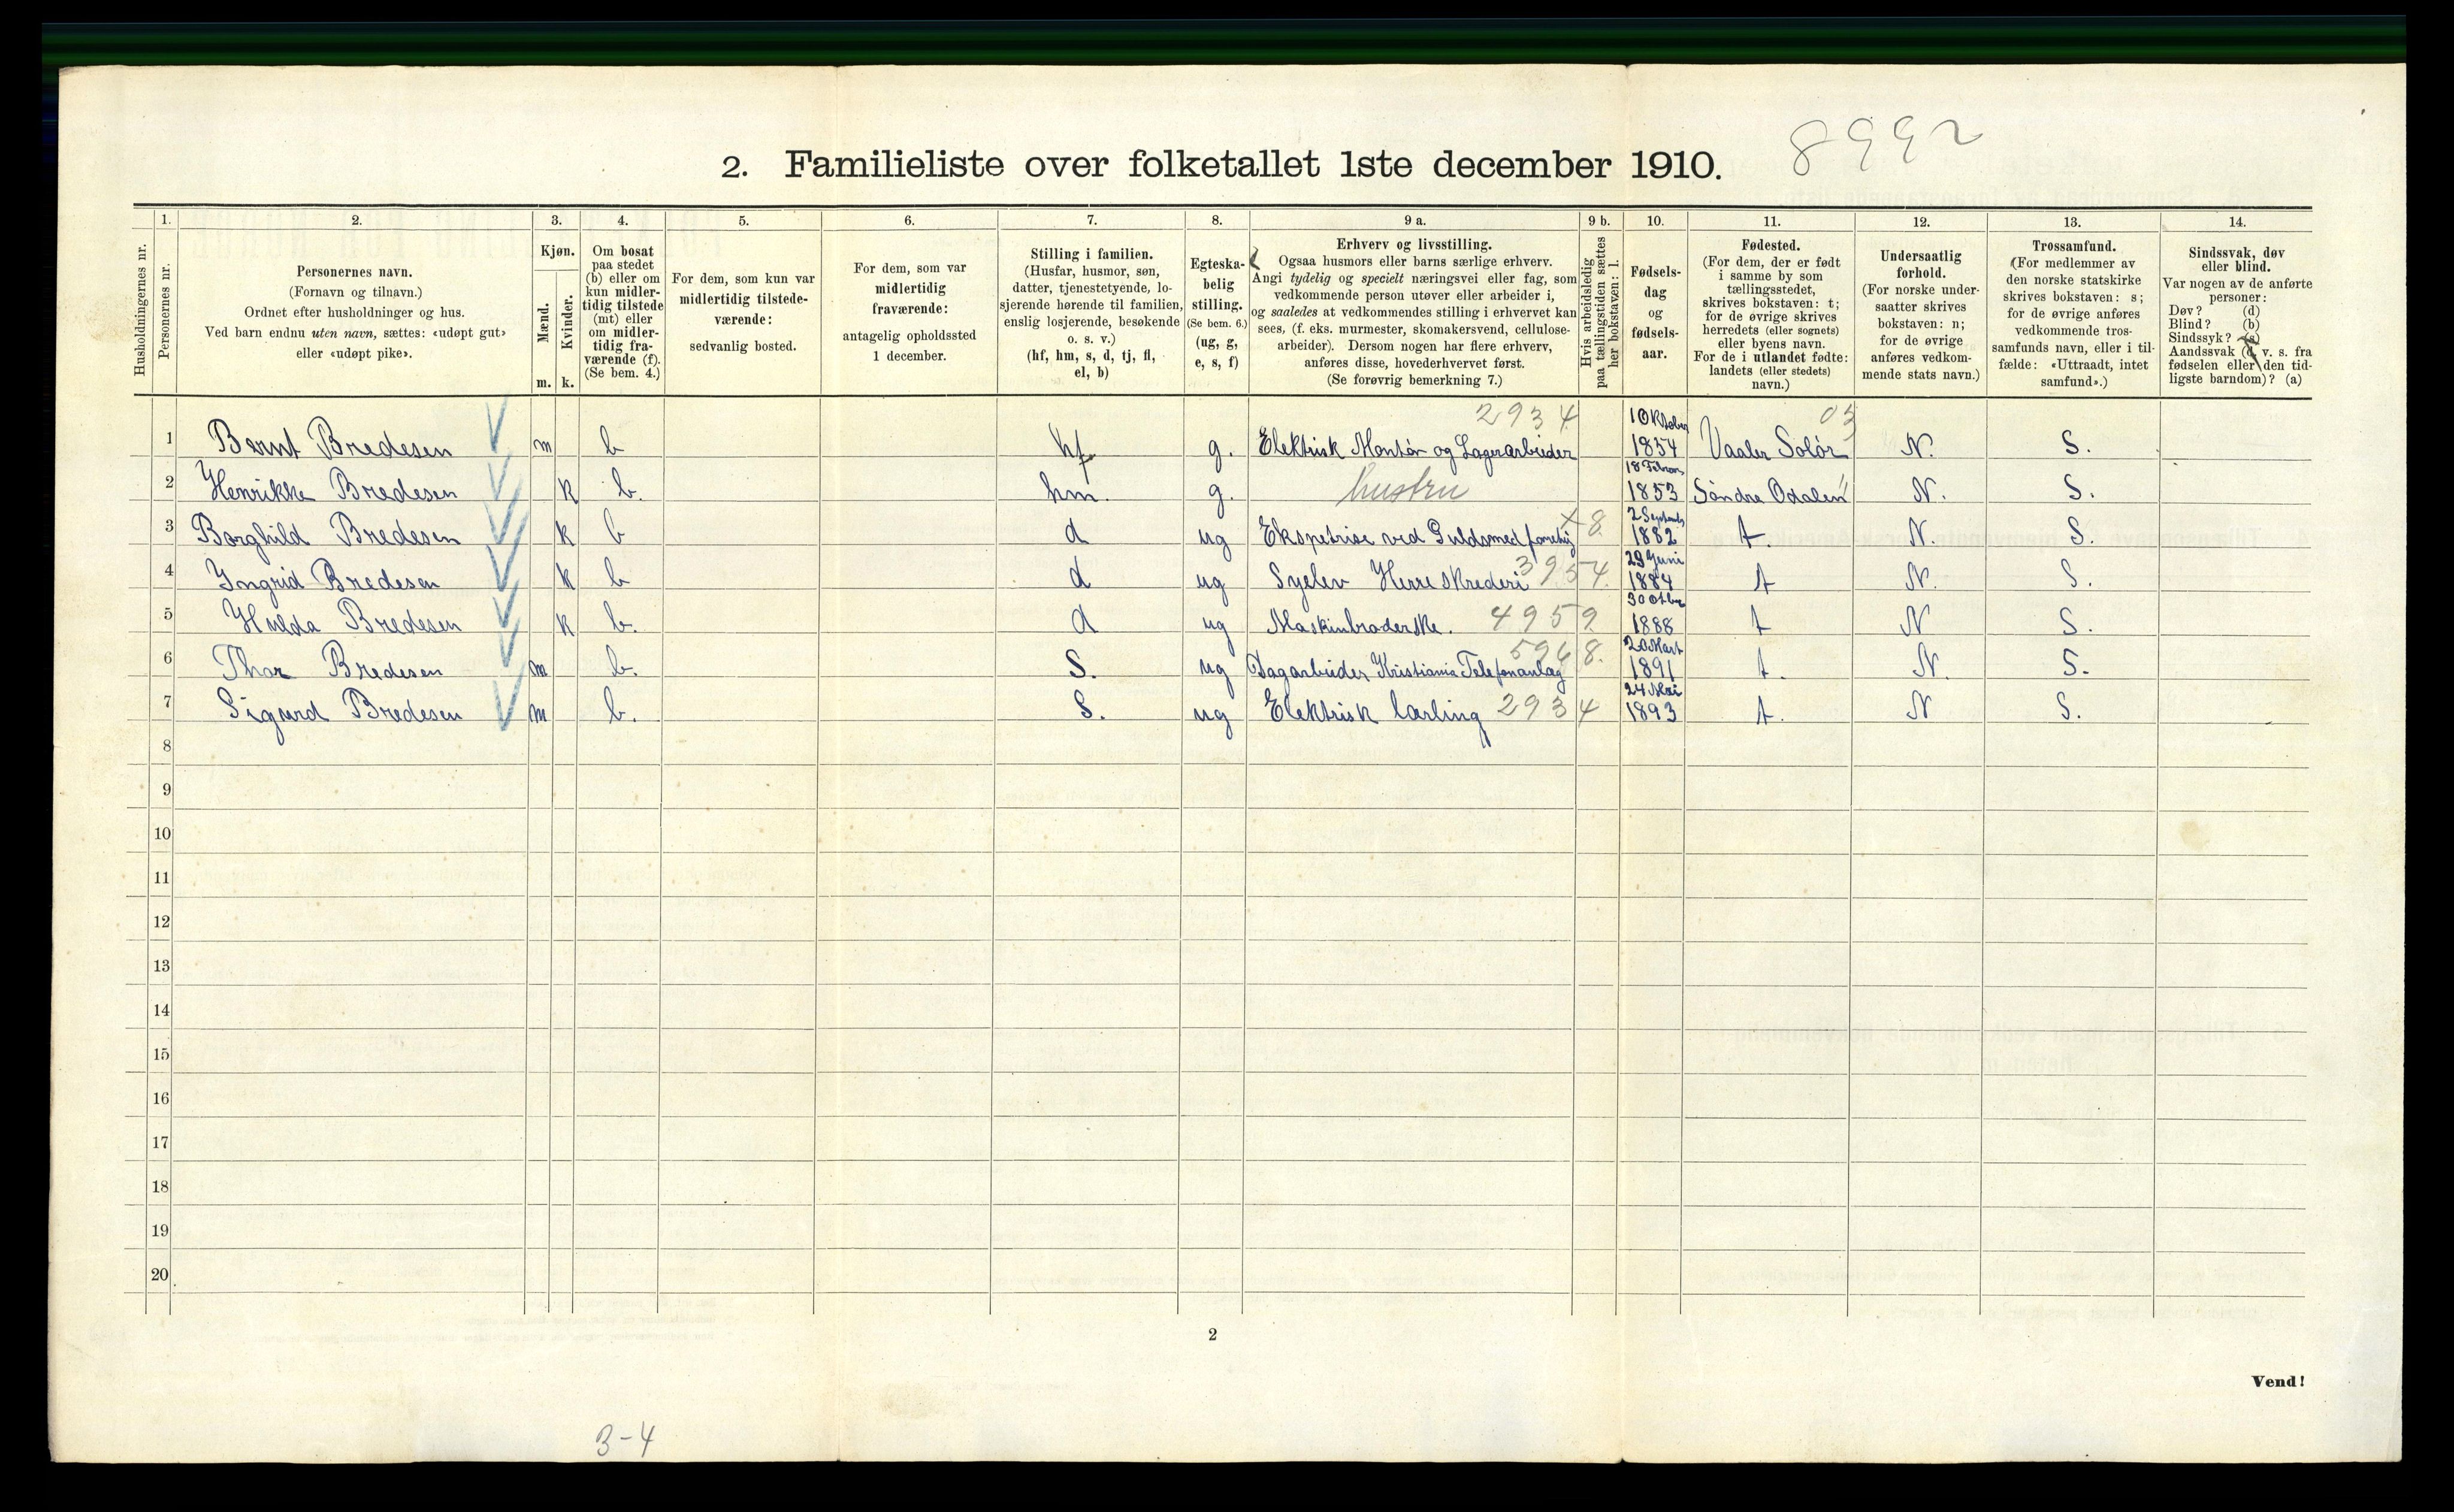 8992
2. Familieliste over folketallet 1ste december 1910.
Husholdningernes nr.
1. Personernes nr.
2. Personernes navn.
(Fornavn og tilnavn.)
Ordnet efter husholdninger og hus.
Ved barn endnu uten navn, sættes: «udøpt gut»
eller «udøpt pike».
3. Kjøn.
Mænd. m.
Kvinder. k.
4. Om bosat
paa stedet
(b) eller om
kun midler-
tidig tilstede
(mt) eller
om midler-
tidig fra-
værende (f).
(Se bem. 4.)
5. For dem, som kun var
midlertidig tilstede-
værende:
sedvanlig bosted.
6. For dem, som var
midlertidig
fraværende:
antagelig opholdssted
1 december.
7. Stilling i familien.
(Husfar, husmor, søn,
datter, tjenestetyende, lo-
sjerende hørende til familien,
enslig losjerende, besøkende
o. s. v.)
(hf, hm, s, d, tj, fl,
el, b)
8. Egteska-
belig
stilling.
(Se bem. 6.)
(ug, g,
e, s, f)
9 a. Erhverv og livsstilling.
Ogsaa husmors eller barns særlige erhverv.
Angi tydelig og specielt næringsvei eller fag, som
vedkommende person utøver eller arbeider i,
og saaledes at vedkommendes stilling i erhvervet kan
sees, (f. eks. murmester, skomakersvend, cellulose-
arbeider). Dersom nogen har flere erhverv,
anføres disse, hovederhvervet først.
(Se forøvrig bemerkning 7.)
9 b. Hvis arbeidsledig
paa tællingstiden sættes
her bokstaven: l.
10. Fødsels-
dag
og
fødsels-
aar.
11. Fødested.
(For dem, der er født
i samme by som
tællingsstedet,
skrives bokstaven: t;
for de øvrige skrives
herredets (eller sognets)
eller byens navn.
For de i utlandet fødte:
landets (eller stedets)
navn.)
12. Undersaatlig
forhold.
(For norske under-
saatter skrives
bokstaven: n;
for de øvrige
anføres vedkom-
mende stats navn.)
13. Trossamfund.
(For medlemmer av
den norske statskirke
skrives bokstaven: s;
for de øvrige anføres
vedkommende tros-
samfunds navn, eller i til-
fælde: «Uttraadt, intet
samfund».)
14. Sindssvak, døv
eller blind.
Var nogen av de anførte
personer:
Døv? (d)
Blind? (b)
Sindssyk? (s)
Aandssvak (d. v. s. fra
fødselen eller den tid-
ligste barndom)? (a)
2934 10 Oktober 03
1 Bernt Bredesen m b hf g. Elektrisk Montør og Lagerarbeider 1854 Vaaler Solør N. S.
18 Februar
2 Henrikke Bredesen k b. hm. g. hustru 1853 Søndre Odalen N. S.
x 8. 2 September
3 Borghild Bredesen k b d ug Ekspetrise ved Guldsmed 1882 t. N. S.
29 Juni
4 Yngrid Bredesen k b d ug Syelev Herreskrederi 3954. 1884 t N. S.
30 Otber
5 Hulda Bredesen k b. d ug Maskinbroderske. 4959 1888 t N S.
8. 20 Mart
6 Thor Bredesen m b. S. ug Dagarbeider Kristiania Telefonanlæg 1891 t. N. S.
24 Mai
7 Sigurd Bredesen m b. S. ug Elektrisk lærling 2934 1893 t. N S.
8
9
10
11
12
13
14
15
16
17
18
19
20
2
Vend!
3-4